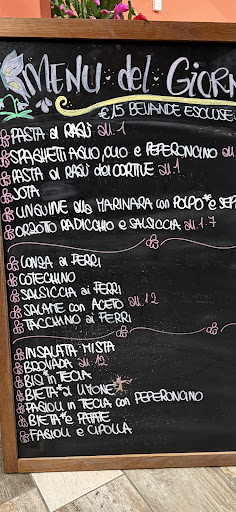 MENU del GIORN
€15 BEVANDE ESCLUSE
PASTA al RAGÙ all.1
SPAGHETTI AGLIO, OLIO e PEPERONCINO all
PASTA al RAGÙ dal CORTILE all.1
JOTA
LINGUINE alla MARINARA con POLPO*e SEP
ORZOTTO RADICCHIO e SALSICCIA all.1.7
LONZA ai FERRI
COTECHINO
SALSICCIA ai FERRI
SALAME con ACETO all.12
TACCHINO ai FERRI
INSALATA MISTA
BROVADA all.12
BIO* in TECIA
BIETA* al LIMONE
FAGIOLI in TECIA con PEPERONCINO
BIETA* e PATATE
FAGIOLI e CIPOLLA